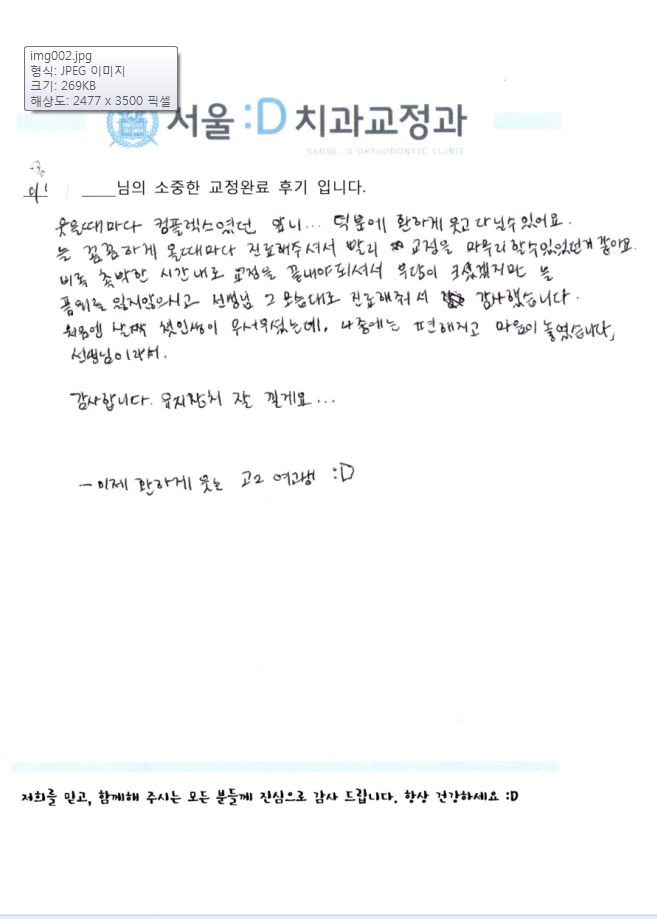 img002.jpg
형식: JPEG 이미지
크기: 269KB
해상도: 2477 x 3500 픽셀
서울 :D 치과교정과
SEOUL :D ORTHODONTIC CLINIC
이 님의 소중한 교정완료 후기 입니다.
웃을때마다 컴플렉스였던 앞니... 덕분에 환하게 웃고 다닐수 있어요.
늘 꼼꼼하게 올때마다 진료해주셔서 빨리 교정을 마무리 할수 있었던거 같아요.
비록 촉박한 시간내로 교정을 끝내야되셔서 부담이 크셨겠지만 늘
품위를 잃지않으시고 선생님 그 모습대로 진료해줘서 감사했습니다.
처음엔 첫인상이 무서우셨는데, 나중에는 편해지고 마음이 놓였습니다,
선생님이라서.
감사합니다. 유지장치 잘 낄게요...
- 이제 환하게 웃는 고2 여고생 :D
저희를 믿고, 함께해 주시는 모든 분들께 진심으로 감사 드립니다. 항상 건강하세요 :D